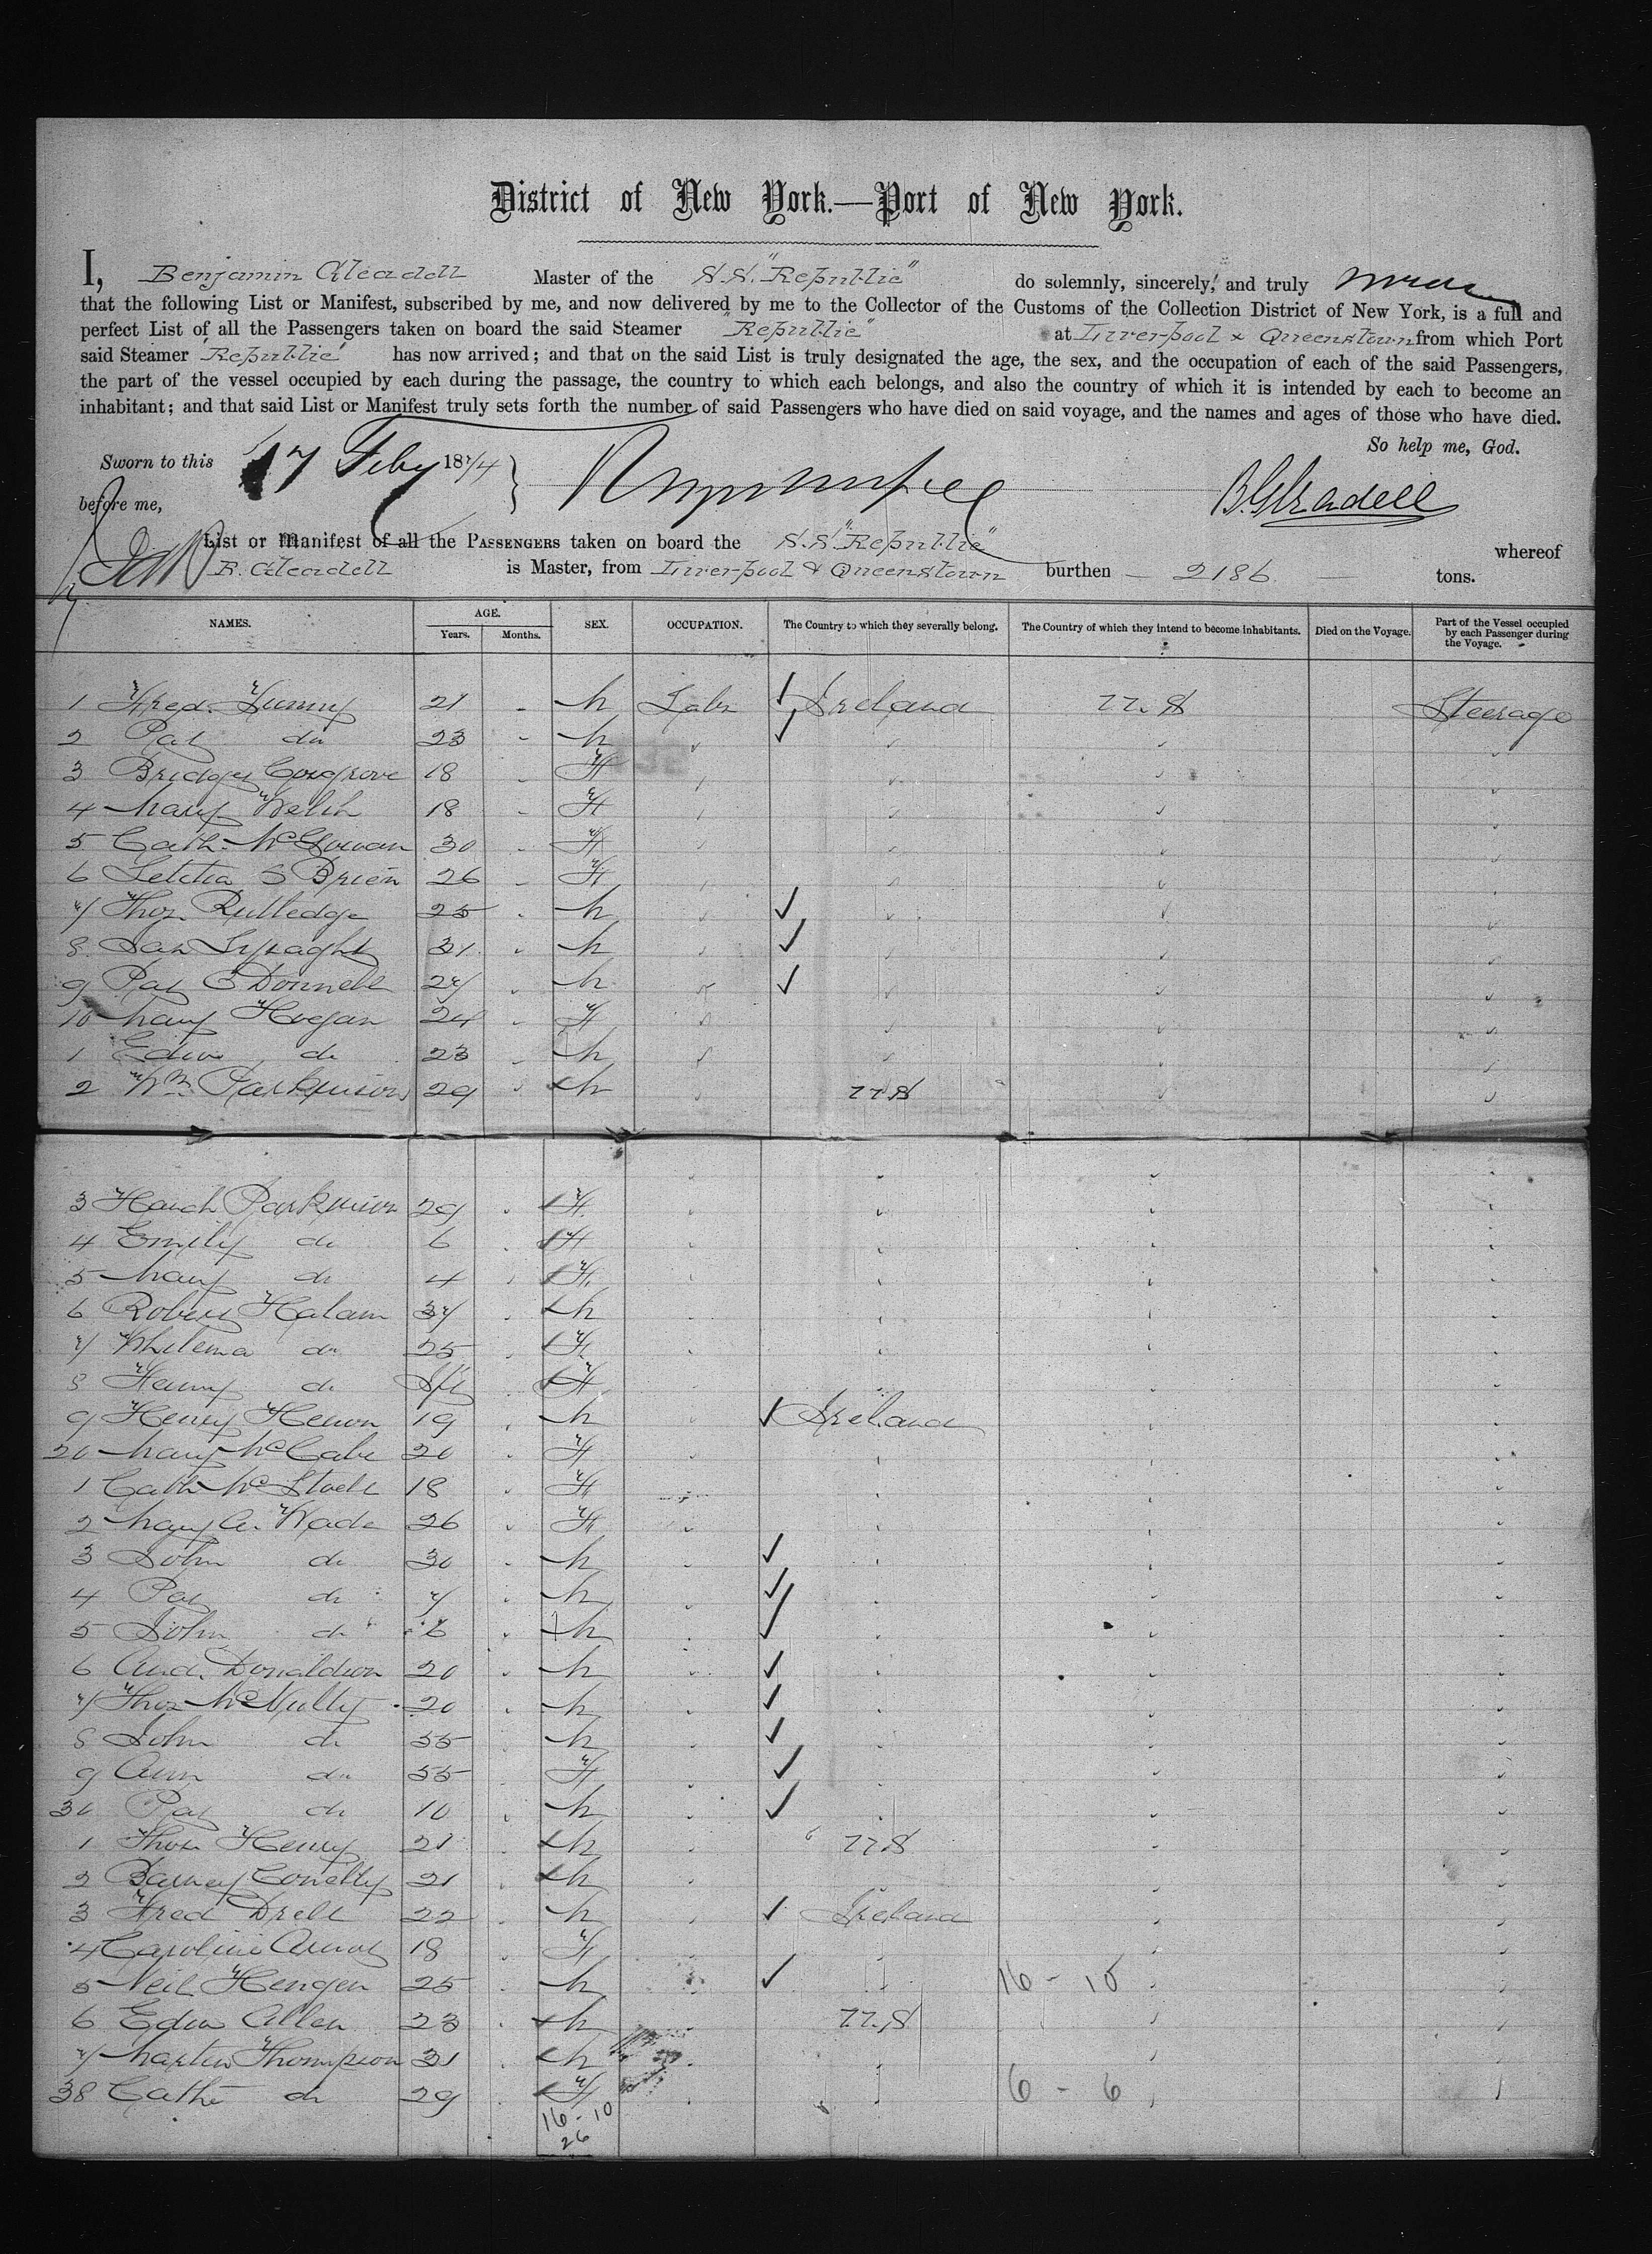 District of New York.—Port of New York.
I, Benjamin Gleadell Master of the S.S. "Republic" do solemnly, sincerely, and truly swear
that the following List or Manifest, subscribed by me, and now delivered by me to the Collector of the Customs of the Collection District of New York, is a full and
perfect List of all the Passengers taken on board the said Steamer "Republic" at Liverpool & Queenstown from which Port
said Steamer "Republic" has now arrived; and that on the said List is truly designated the age, the sex, and the occupation of each of the said Passengers,
the part of the vessel occupied by each during the passage, the country to which each belongs, and also the country of which it is intended by each to become an
inhabitant; and that said List or Manifest truly sets forth the number of said Passengers who have died on said voyage, and the names and ages of those who have died.
So help me, God.
Sworn to this 17 Feby 1874
before me, B. Gleadell
List or Manifest of all the Passengers taken on board the S.S. "Republic" whereof
B. Gleadell is Master, from Liverpool & Queenstown burthen — 2186 — tons.
NAMES. AGE. Years. Months. SEX. OCCUPATION. The Country to which they severally belong. The Country of which they intend to become inhabitants. Died on the Voyage. Part of the Vessel occupied by each Passenger during the Voyage.
1 Fred. 21 - M Labr Ireland U.S Steerage
2 Pat do 23 - M
3 Bridget Cosgrove 18 - F
4 Mary Welsh 18 - F
5 Cath. McGowan 30 - F
6 Letitia O Brien 26 - F
7 Thos Rutledge 25 M
8 Jas Lysaght 31 M
9 Pat O Donnell 27 M
10 Mary Hogan 24 F
1 Edw do 23 M
2 Wm Parkinson 29 M U.S
3 Hanah Parkinson 29 F
4 Emily do 6 F
5 Mary do 4 F
6 Robert Halam 37 M
7 do 25 F
8 do Inft F
9 Henry 19 M Ireland
20 Mary McCabe 20 F
1 Cath 18 F
2 Mary A. Wade 26 F
3 John do 30 M
4 Pat do 7 M
5 John do 6 M
6 And. Donaldson 20 M
7 Thos McNulty 20 M
8 John do 55 M
9 Ann do 55 F
30 Pat do 10 M
1 Thos Henry 21 M U.S
2 Barney Conelly 21 M
3 Fred Drell 22 M Ireland
4 Caroline 18 F
5 Neil 25 M 16 - 10
6 Edw Allen 23 M U.S
7 Martin Thompson 31 M
38 Cathe do 29 F 6 - 6
16 - 10
26